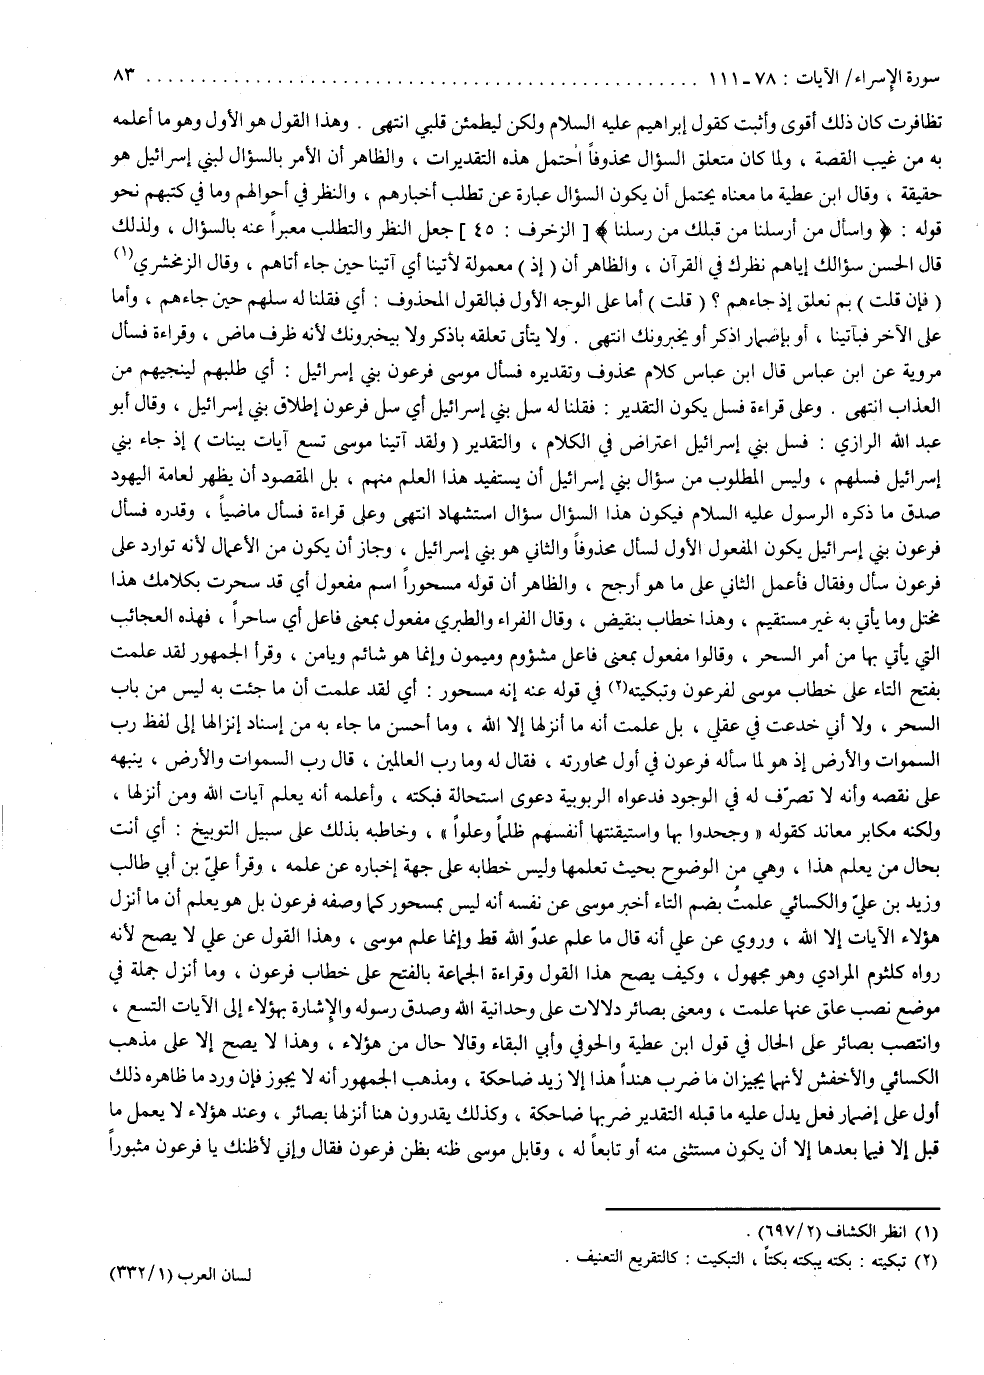 سورة الإسراء/ الآيات : ٧٨ ـ ١١١ . . . . . . . . . . . . . . . . . . . . . . . . . . . . . . . . . . . . . . . . . . . . . . . . . ٨٣
تظافرت كان ذلك أقوى وأثبت كقول إبراهيم عليه السلام ولكن ليطمئن قلبي انتهى . وهذا القول هو الأول وهو ما أعلمه
به من غيب القصة ، ولما كان متعلق السؤال محذوفاً احتمل هذه التقديرات ، والظاهر أن الأمر بالسؤال لبني إسرائيل هو
حقيقة ، وقال ابن عطية ما معناه يحتمل أن يكون السؤال عبارة عن تطلب أخبارهم ، والنظر في أحوالهم وما في كتبهم نحو
قوله : ﴿ واسأل من أرسلنا من قبلك من رسلنا ﴾ [ الزخرف : ٤٥ ] جعل النظر والتطلب معبراً عنه بالسؤال ، ولذلك
قال الحسن سؤالك إياهم نظرك في القرآن ، والظاهر أن ( إذ ) معمولة لأتينا أي آتينا حين جاء أتاهم ، وقال الزمخشري(١)
( فإن قلت ) بم نعلق إذ جاءهم ؟ ( قلت ) أما على الوجه الأول فبالقول المحذوف : أي فقلنا له سلهم حين جاءهم ، وأما
على الآخر فبآتينا ، أو بإضمار اذكر أو يخبرونك انتهى . ولا يتأتى تعلقه باذكر ولا بيخبرونك لأنه ظرف ماض ، وقراءة فسأل
مروية عن ابن عباس قال ابن عباس كلام محذوف وتقديره فسأل موسى فرعون بني إسرائيل : أي طلبهم لينجيهم من
العذاب انتهى . وعلى قراءة فسل يكون التقدير : فقلنا له سل بني إسرائيل أي سل فرعون إطلاق بني إسرائيل ، وقال أبو
عبد الله الرازي : فسل بني إسرائيل اعتراض في الكلام ، والتقدير ( ولقد آتينا موسى تسع آيات بينات ) إذ جاء بني
إسرائيل فسلهم ، وليس المطلوب من سؤال بني إسرائيل أن يستفيد هذا العلم منهم ، بل المقصود أن يظهر لعامة اليهود
صدق ما ذكره الرسول عليه السلام فيكون هذا السؤال سؤال استشهاد انتهى وعلى قراءة فسأل ماضياً ، وقدره فسأل
فرعون بني إسرائيل يكون المفعول الأول لسأل محذوفاً والثاني هو بني إسرائيل ، وجاز أن يكون من الأعمال لأنه توارد على
فرعون سأل وفقال فأعمل الثاني على ما هو أرجح ، والظاهر أن قوله مسحوراً اسم مفعول أي قد سحرت بكلامك هذا
مختل وما يأتي به غير مستقيم ، وهذا خطاب بنقيض ، وقال الفراء والطبري مفعول بمعنى فاعل أي ساحراً ، فهذه العجائب
التي يأتي بها من أمر السحر ، وقالوا مفعول بمعنى فاعل مشؤوم وميمون وإنما هو شائم ويامن ، وقرأ الجمهور لقد علمت
بفتح التاء على خطاب موسى لفرعون وتبكيته(٢) في قوله عنه إنه مسحور : أي لقد علمت أن ما جئت به ليس من باب
السحر ، ولا أني خدعت في عقلي ، بل علمت أنه ما أنزلها إلا الله ، وما أحسن ما جاء به من إسناد إنزالها إلى لفظ رب
السموات والأرض إذ هو لما سأله فرعون في أول محاورته ، فقال له وما رب العالمين ، قال رب السموات والأرض ، ينبهه
على نقصه وأنه لا تصرّف له في الوجود فدعواه الربوبية دعوى استحالة فبكته ، وأعلمه أنه يعلم آيات الله ومن أنزلها ،
ولكنه مكابر معاند كقوله « وجحدوا بها واستيقنتها أنفسهم ظلماً وعلواً » ، وخاطبه بذلك على سبيل التوبيخ : أي أنت
بحال من يعلم هذا ، وهي من الوضوح بحيث تعلمها وليس خطابه على جهة إخباره عن علمه ، وقرأ عليّ بن أبي طالب
وزيد بن عليّ والكسائي علمتُ بضم التاء أخبر موسى عن نفسه أنه ليس بمسحور كما وصفه فرعون بل هو يعلم أن ما أنزل
هؤلاء الآيات إلا الله ، وروي عن علي أنه قال ما علم عدوّ الله قط وإنما علم موسى ، وهذا القول عن علي لا يصح لأنه
رواه كلثوم المرادي وهو مجهول ، وكيف يصح هذا القول وقراءة الجماعة بالفتح على خطاب فرعون ، وما أنزل جملة في
موضع نصب علق عنها علمت ، ومعنى بصائر دلالات على وحدانية الله وصدق رسوله والإشارة بهؤلاء إلى الآيات التسع ،
وانتصب بصائر على الحال في قول ابن عطية والحوفي وأبي البقاء وقالا حال من هؤلاء ، وهذا لا يصح إلا على مذهب
الكسائي والأخفش لأنهما يجيزان ما ضرب هنداً هذا إلا زيد ضاحكة ، ومذهب الجمهور أنه لا يجوز فإن ورد ما ظاهره ذلك
أول على إضمار فعل يدل عليه ما قبله التقدير ضربها ضاحكة ، وكذلك يقدرون هنا أنزلها بصائر ، وعند هؤلاء لا يعمل ما
قبل إلا فيما بعدها إلا أن يكون مستثنى منه أو تابعاً له ، وقابل موسى ظنه بظن فرعون فقال وإني لأظنك يا فرعون مثبوراً
(١) انظر الكشاف (٦٩٧/٢) .
(٢) تبكيته : بكته يبكته بكتاً ، التبكيت : كالتقريع التعنيف .
لسان العرب (٣٣٢/١)